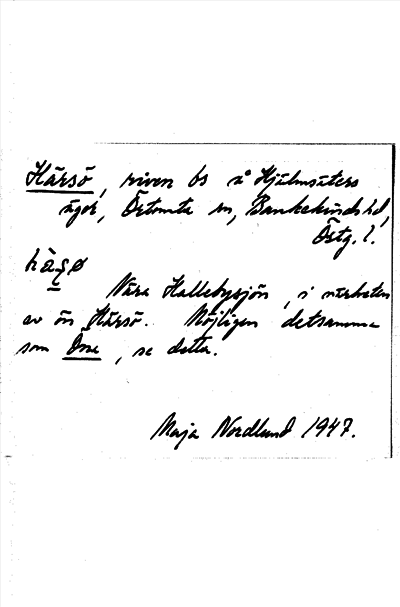 Härsö, riven bs å Hjälmsäters
ägor, Örtomta sn, Bankekinds hd,
Östg. l.
hàʂø
Nära Hallebysjön, i närheten
av ön Härsö. Möjligen detsamma
som Öna, se detta.
Maja Nordlund 1947.